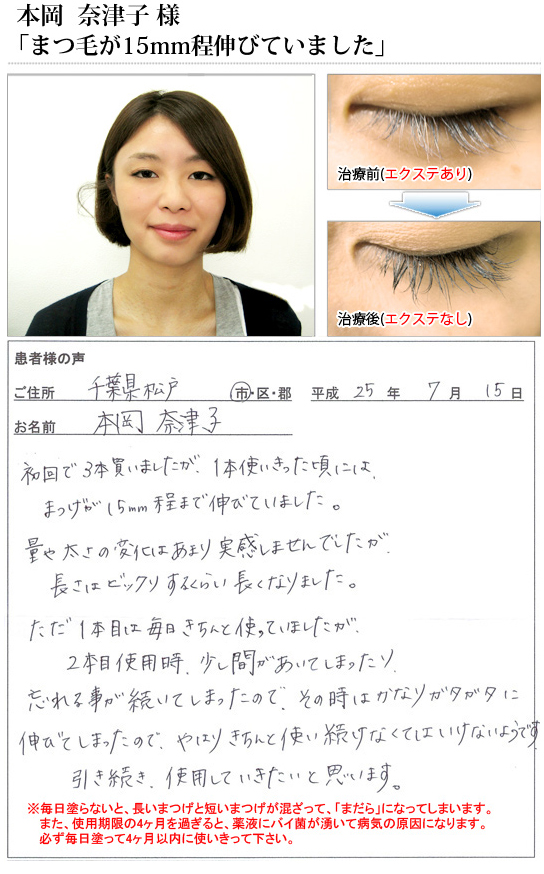 本岡 奈津子 様
「まつ毛が15mm程伸びていました」
治療前(エクステあり)
治療後(エクステなし)
患者様の声
ご住所 千葉県松戸 市・区・郡 平成 25 年 7 月 15 日
お名前 本岡 奈津子
初回で3本買いましたが、1本使いきった頃には、
まつげが15mm程まで伸びていました。
量や太さの変化はあまり実感しませんでしたが、
長さはビックリするくらい長くなりました。
ただ1本目は毎日きちんと使っていましたが、
2本目使用時、少し間があいてしまったり、
忘れる事が続いてしまったので、その時はかなりガタガタに
伸びてしまったので、やはりきちんと使い続けなくてはいけないようです
引き続き、使用していきたいと思います。
※毎日塗らないと、長いまつげと短いまつげが混ざって、「まだら」になってしまいます。
また、使用期限の4ヶ月を過ぎると、薬液にバイ菌が湧いて病気の原因になります。
必ず毎日塗って4ヶ月以内に使いきって下さい。